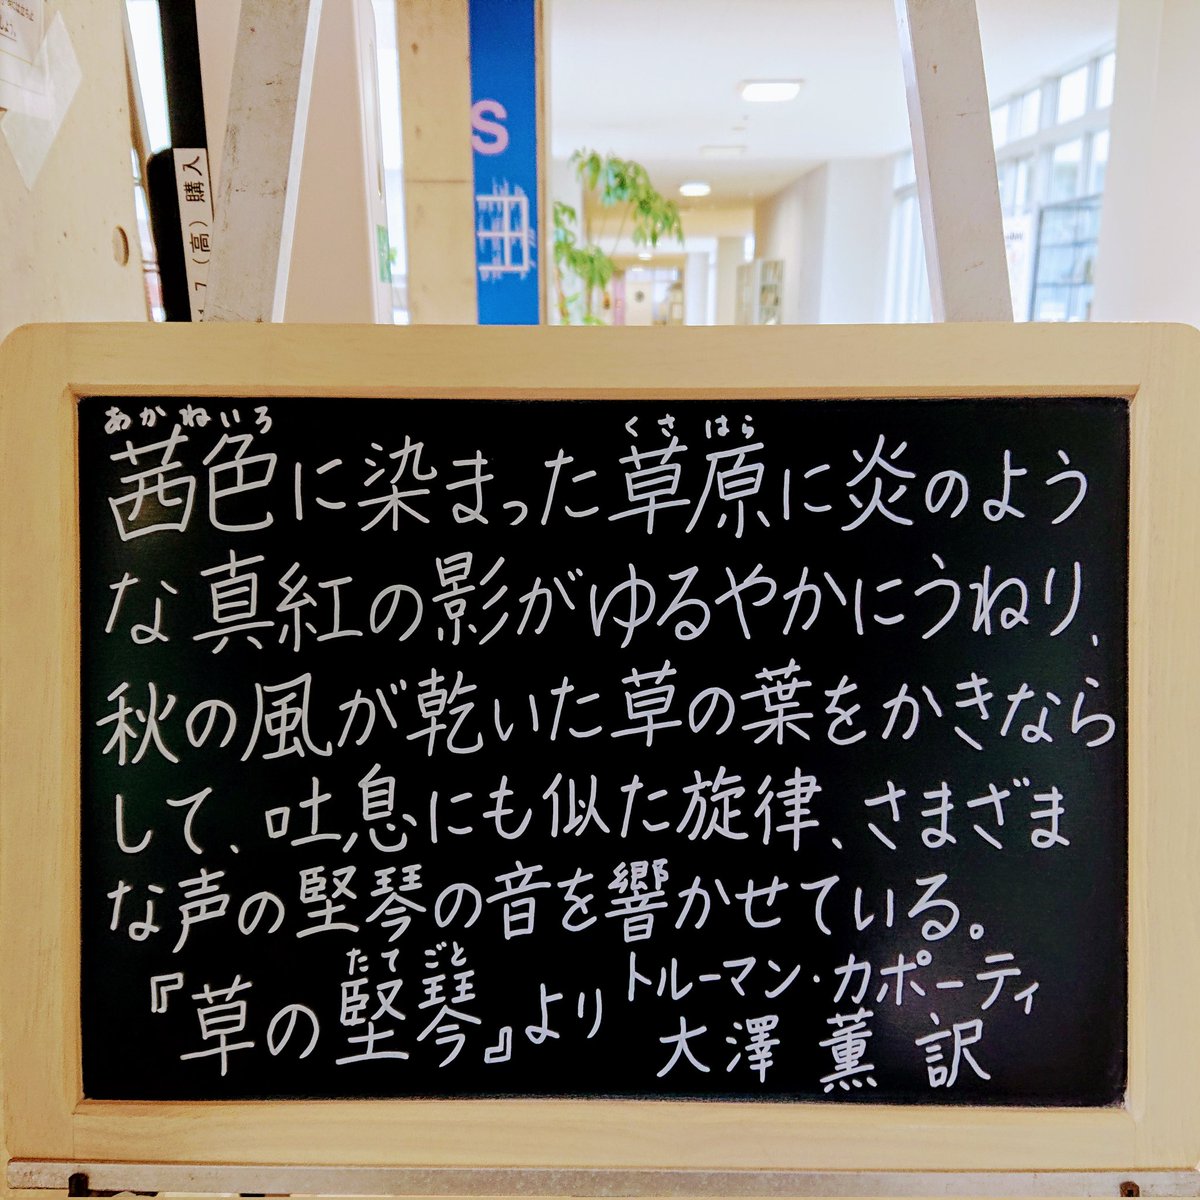 (高)購入
S
あかねいろ くさはら
茜色に染まった草原に炎のよう
な真紅の影がゆるやかにうねり、
秋の風が乾いた草の葉をかきなら
して、吐息にも似た旋律、さまざま
な声の竪琴の音を響かせている。
たてごと
『草の竪琴』より
トルーマン・カポーティ
大澤 薫 訳